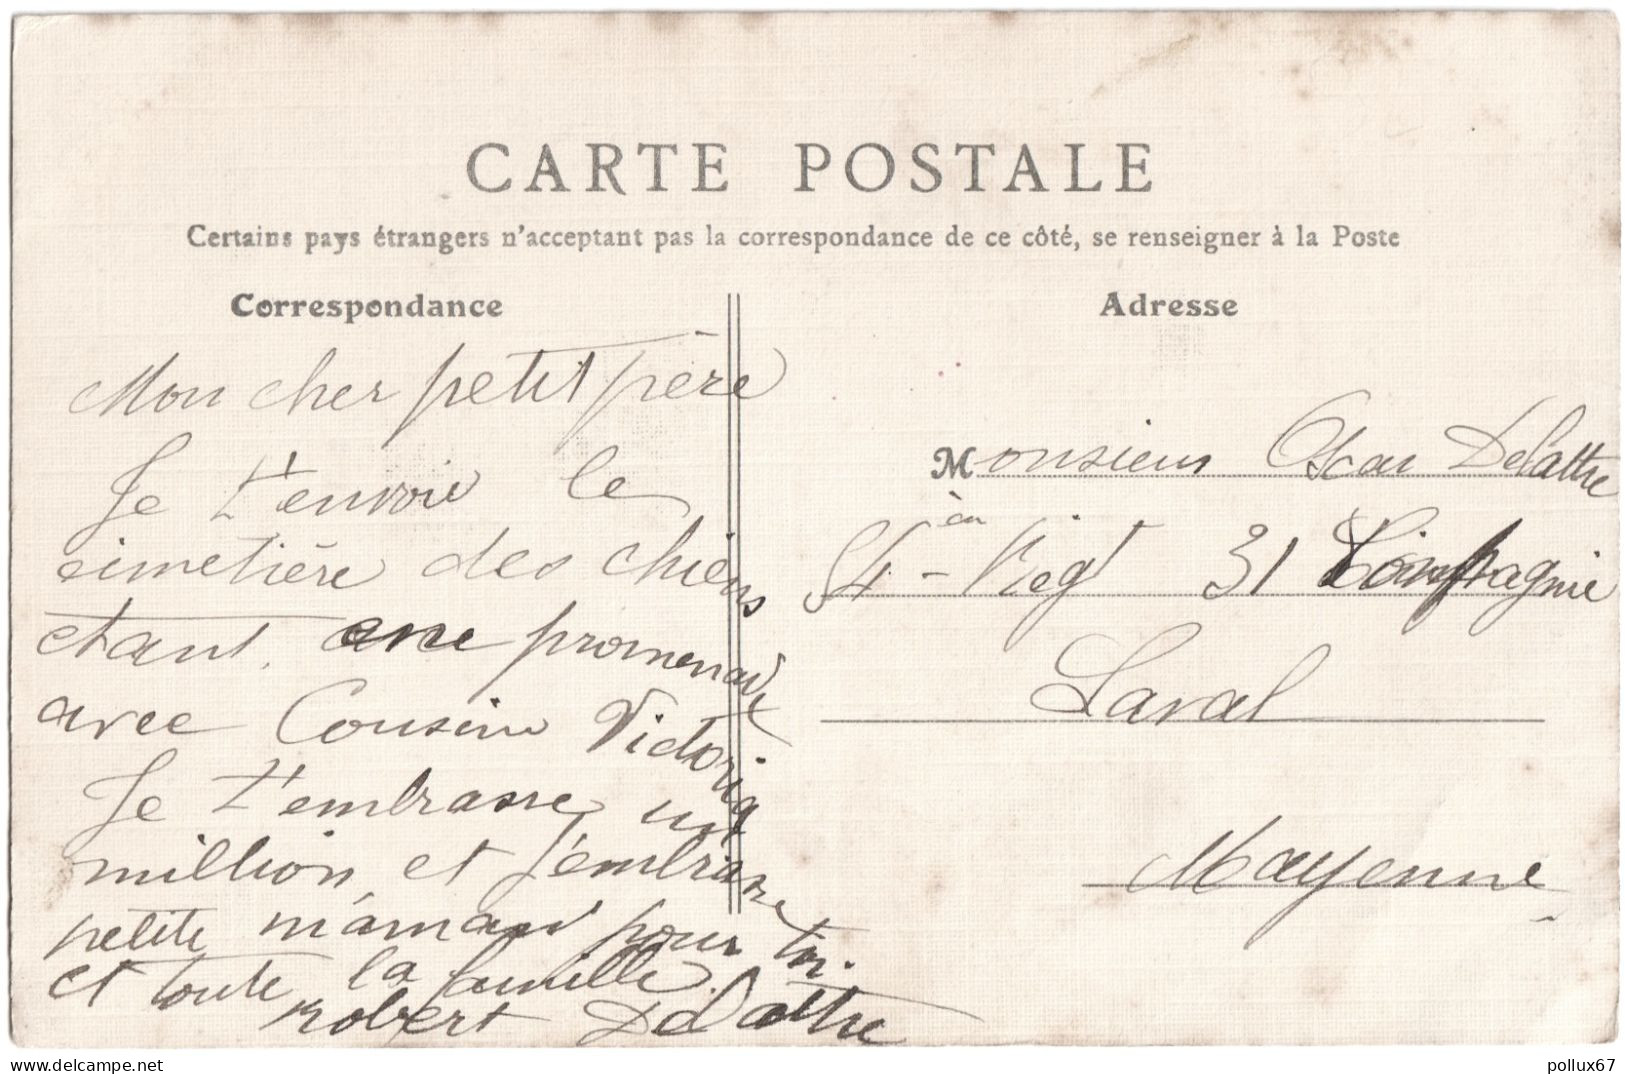 CARTE POSTALE
Certains pays étrangers n'acceptant pas la correspondance de ce côté, se renseigner à la Poste
Correspondance
Mon cher petit père
Je t'envoie le
cimetière des chiens
étant, une promenade
avec Cousine Victoria
Je t'embrasse un
million et j'embrasse
petite maman pour toi.
et toute la famille.
Robert Delattre
Adresse
Monsieur Oscar Delattre
à Regt 31 Compagnie
Laval
Mayenne
delcampe.net
pollux67